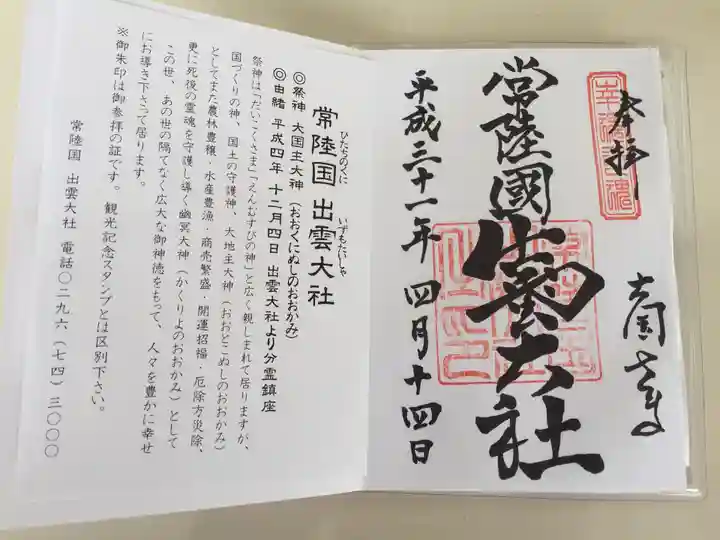 奉拝
大国主大神
常陸國出雲大社
平成三十一年四月十四日
常陸国 出雲大社
ひたちのくに いずもたいしゃ
◎祭神 大国主大神(おおくにぬしのおおかみ)
◎由緒 平成四年 十二月四日 出雲大社より分霊鎮座
祭神は「だいこくさま」「えんむすびの神」と広く親しまれて居りますが、
国づくりの神、国土の守護神、大地主大神(おおとこぬしのおおかみ)
としてまた農林豊穣・水産豊漁・商売繁盛・開運招福・厄除方災除、
更に死後の霊魂を守護し導く幽冥大神(かくりよのおおかみ)として
この世、あの世の隔てなく広大な御神徳をもって、人々を豊かに幸せ
にお導き下さって居ります。
※御朱印は御参拝の証です。観光記念スタンプとは区別下さい。
常陸国 出雲大社 電話〇二九六(七四)三〇〇〇